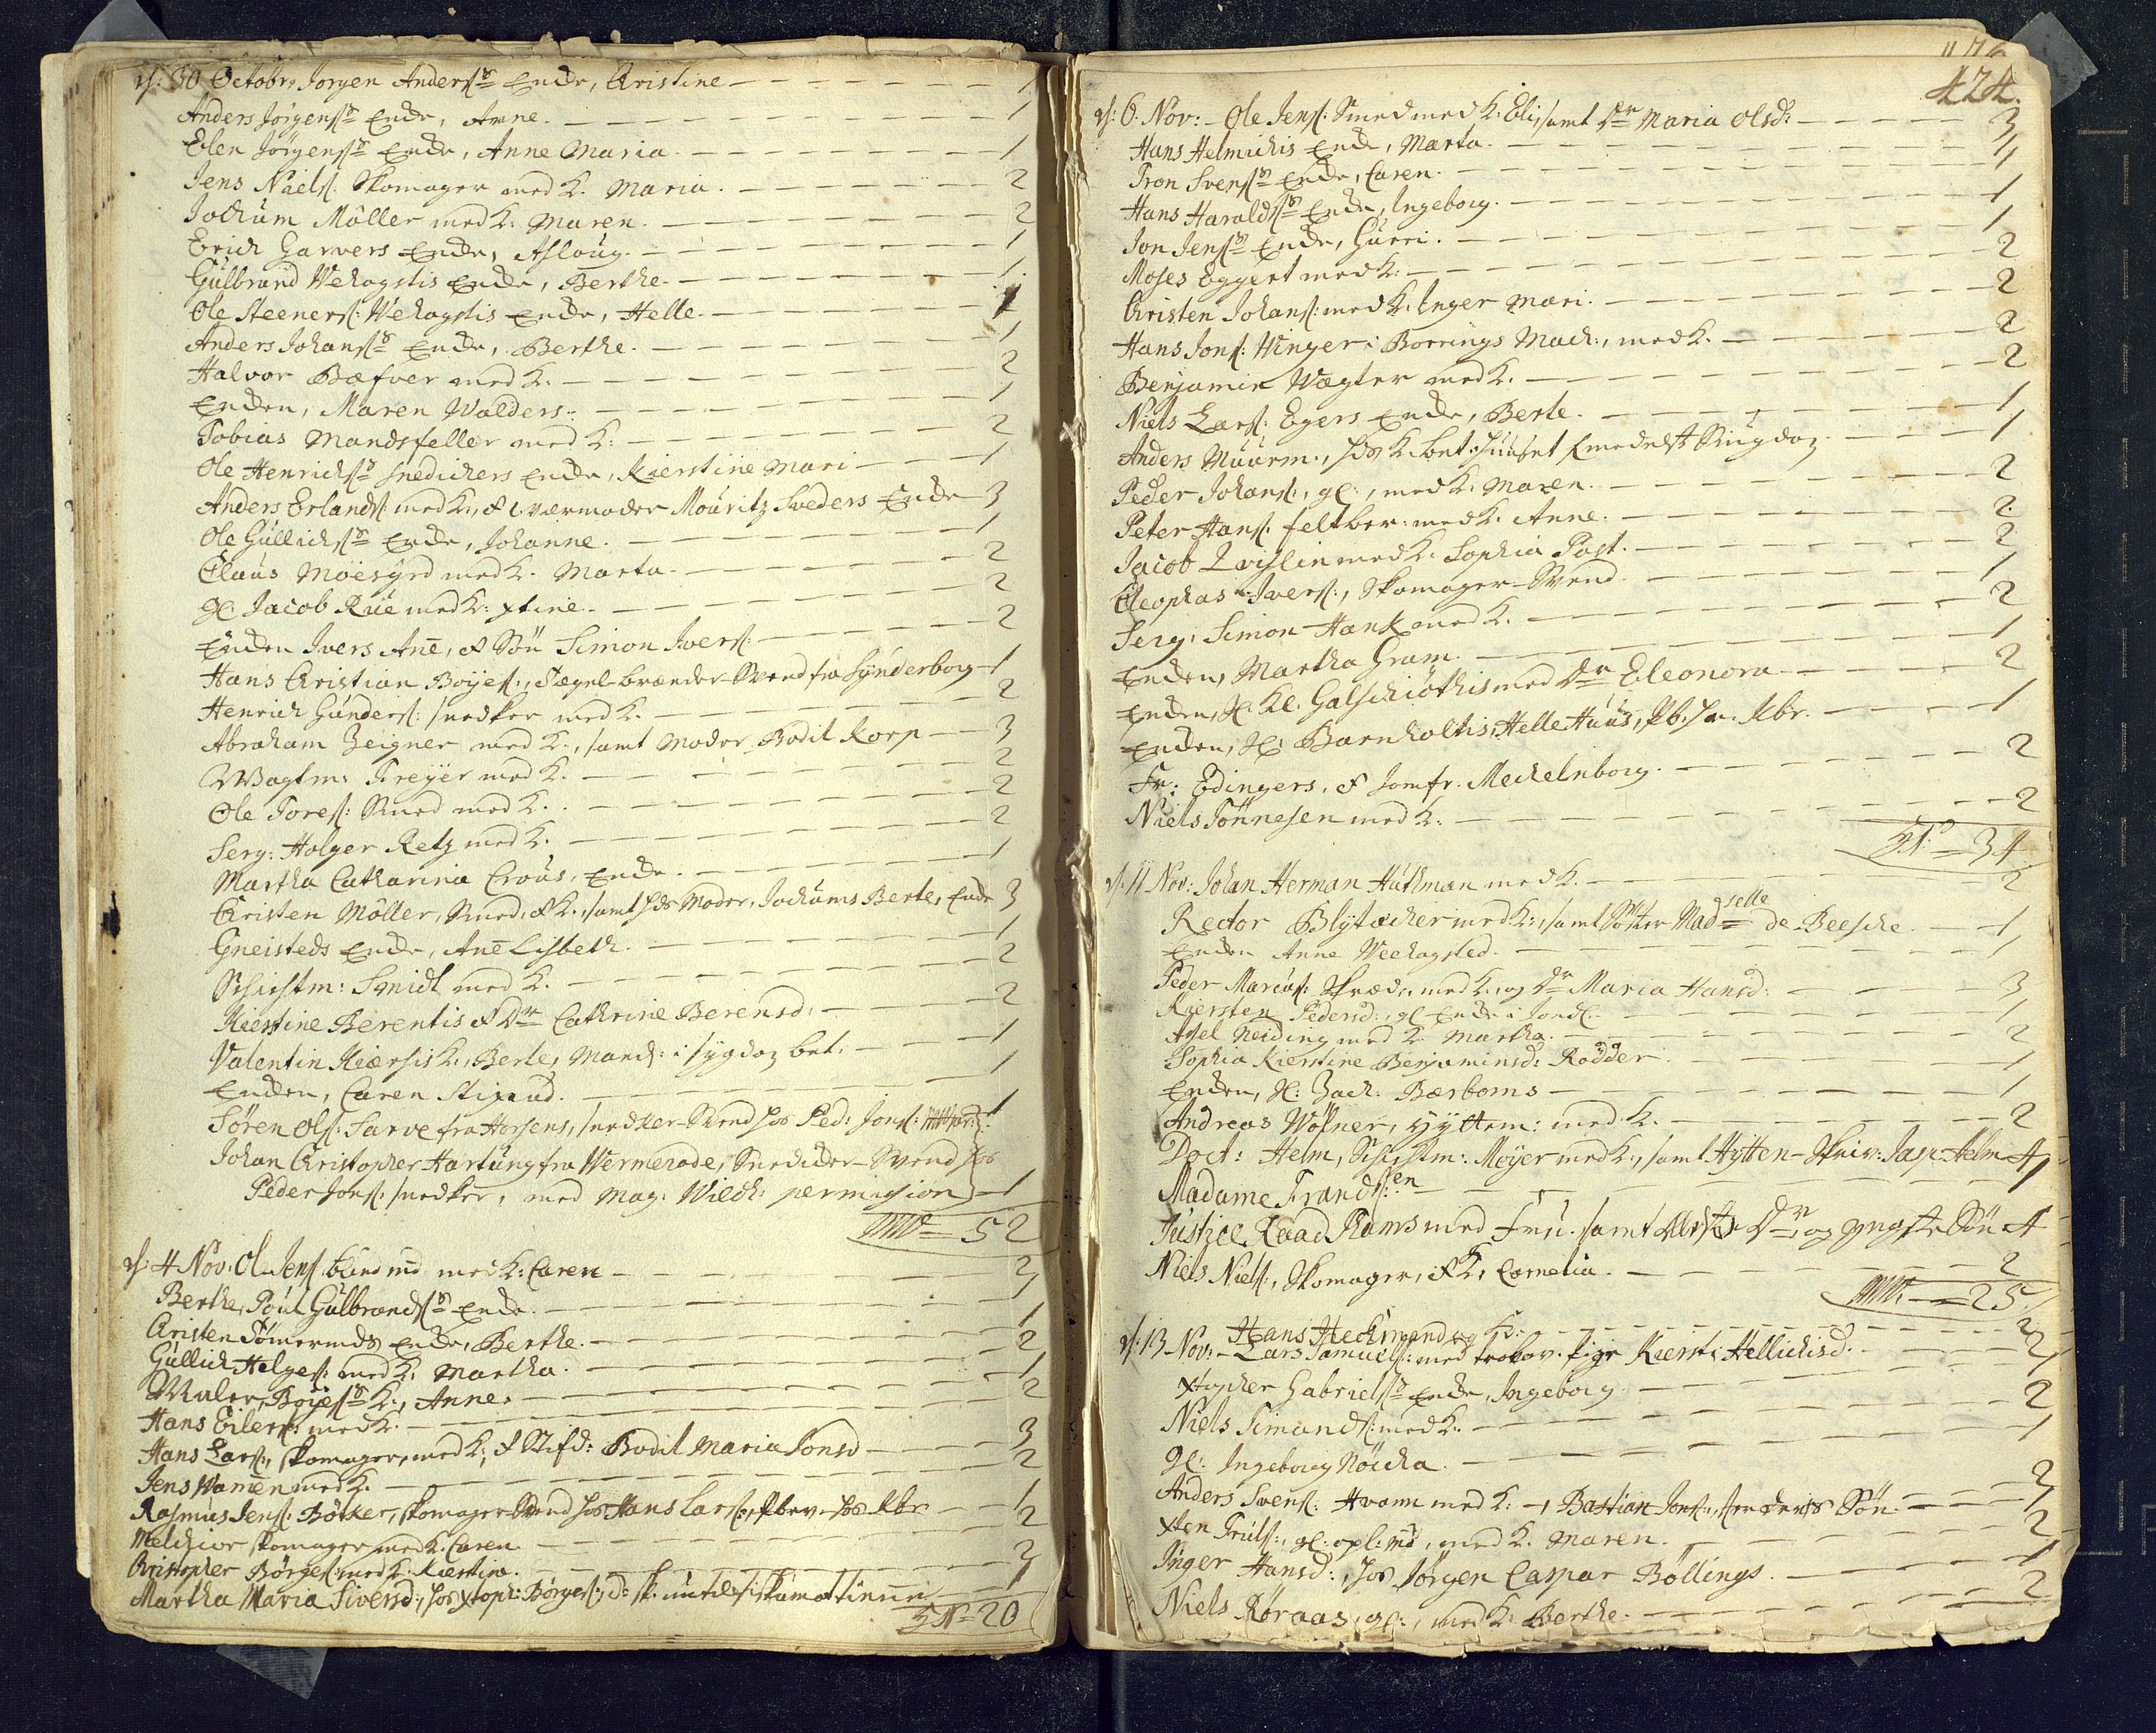 d: 30 Octobr: Jorgen Anders: Encke, Cristine - 1
Anders Jörgens: Encke, Anne. - 1
Elen Jörgens: Encke, Anne Maria - 1
Jens Niels: Skomager med K. Maria. - 2
Jochum Möller med K: Maren. - 2
Erich Garvers Encke, Aslaug. - 1
Gulbrand Wekagstis Encke, Berthe. - 1
Ole Steeners: Wekagstis Encke, Helle. - 1
Anders Johans: Encke, Berthe. - 1
Halvor Bæfver med K. - 2
Encken, Maren Walders. - 1
Tobias Mandsfeller med K: - 2
Ole Henrichs: Snedickers Encke, Kierstine Mari - 1
Anders Erlands: med K., & Værmoder Mouritz Sveders Encke 3
Ole Gullichs: Encke, Johanne. - 1
Claus Moesÿrd med K. Marta. - 2
gl. Jacob Rue med K: xtine. - 2
Encken Ivers Ane, & Søn Simon Ivers: - 2
Hans Cristian Boÿes:, Tægel-brænder-Svend fra Synderborg - 1
Henrich Gunders: snedker med K. - 2
Abraham Zeigner med K., samt Moder Bodil Korp - 3
Wagtm: Freÿer med K. - 2
Ole Tores: Smed med K. - 2
Serg: Holger Retz med K. - 2
Martha Catharina Crous, Encke. - 1
Cristen Möller, Smed, & K., samt hds Moder, Jochums Berte, Encke 3
Gneisteds Encke, Ane Lisbeth. - 1
Schichtm: Smidt med K. - 2
Kiestine Berentis & Dr Cathrine Berensd: - 2
Valentin Kiærsis K., Berte, Mand: i sygdom bet. - 1
Encken, Caren Stigaud. - 1
Sören Ols: Farve fra Horsens, snedker-Svend hos Ped: Jons: - 1
Johan Cristopher Hartung fra Wermerode, Snedicker-Svend hos
Peder Jons: snedker, med Mag: Wilck: permission - 1
52
d: 4 Nov: Ol Jens: med K: Caren - 2
Berthe, Poul Gulbrands: Encke. - 1
Cristen Tömermds Encke, Berthe. - 1
Gullich Helges: med K. Martha. - 2
Boyes: K., Anne. - 1
Hans Eilers: med K. - 2
Hans Lars:, skomager, med K., & Stifd: Bodil Maria Jonsd - 3
Jens Wamen med K. - 2
Rasmus Jens: Bötker, skomager-Svend hos Hans Lars:, - 1
Melchior skomager med K. Caren - 2
Cristopher Börges: med K. Kiestine. - 2
Martha Maria Siversd:, hos xtoph: Börges:, - 1
20
424.
d: 6. Nov: - Ole Jens: Smed med K: Eli, samt Dr Maria Olsd: - 3
Hans Helmichis Encke, Marta. - 1
Tron Svens: Encke, Caren. - 1
Hans Haralds: Encke, Ingeborg. - 1
Jon Jens: Encke, Gurri. - 1
Moses Eggert med K: - 2
Cristen Johans: med K. Inger Mari. - 2
Hans Jons: Winger i Borrings Mach:, med K. - 2
Benjamin Wægter med K. - 2
Niels Lars: Egers Encke, Berte. - 1
Anders Muurm., - 1
Peder Johans:, gl:, med K. Maren. - 2
Peter Hans: feltber: med K. Anne. - 2
Jacob med K. Sophia Post. - 2
Cleophas Ivers:, Skomager-Svend. - 1
Serg: Simon Hank med K. - 2
Encken, Martha Gram. - 1
Encken, H. Kl: Galschiöthis med Dr Eleonora - 2
Encken, H: Barnholtis, Helle Huus, - 1
Fr: Edingers, & Jomfr. Meckelnborg. - 2
Niels Tönnesen med K. - 2
34
d: 11 Nov: Johan Herman Huthman med K. - 2
Rector Blÿtæcker med K:, samt Søster Madselle de Beesche - 1
Encken Anne Weekagsted. - 1
Peder Marcus: Skræd:, med K., og Dr Maria Hansd: - 3
Kiersten Pedersd:, gl Encke i Jondl: - 1
Axel Neiding med K. Martha. - 2
Sophia Kierstine Benjaminsd: Rödder - 1
Encken, H: Zach: Bærboms - 1
Andreas Wöfner, Hyttem: med K. - 2
Doct: Helm, Schichtm: Moÿer med K:, samt Hytten-Skriv: Jasp: Helm 4
Madame Frandsen - 1
Justice Raad Rams med Frü. samt Dr og yngste Søn 4
Niels Niels:, Skomager, & K, Cornelia. - 2
25
Hans Heckmand og K: - 2
d: 13 Nov: - Lars Samuels: med trolov. Kiersti Hellichisd: - 2
xtopher Gabriels: Encke, Ingeborg - 1
Niels Simands: med K. - 2
gl: Ingeborg Nöicka. - 1
Anders Svens: Hvam med K: -, Bastian Jons:, Søn. - 3
xten Truls:, gl: opl: md, med K. Maren. - 2
Inger Hansd:, hos Jörgen Caspar Böllings. - 1
Niels Röraas, gl:, med K. Berthe. - 2